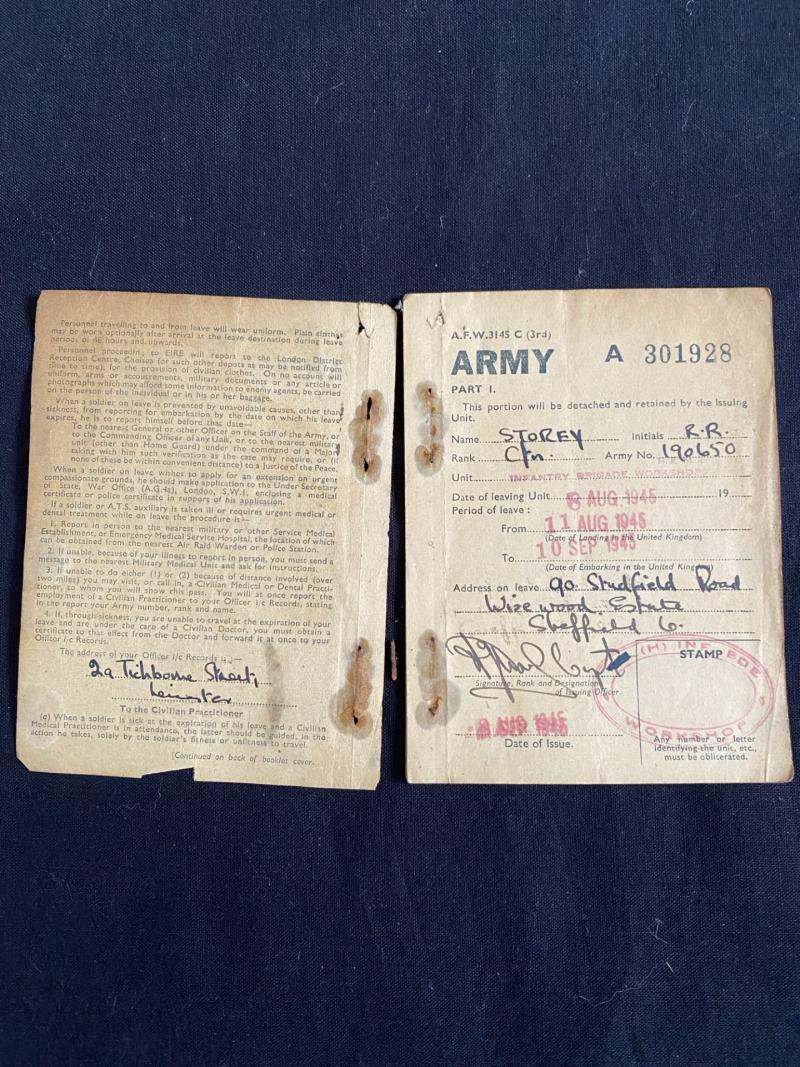 Personnel travelling to and from leave will wear uniform. Plain clothes
may be worn optionally after arrival at the leave destination during leave
periods of 48 hours and upwards.
Personnel proceeding to EIRE will report to the London District
Reception Centre, Chelsea (or such other depots as may be notified from
time to time), for the provision of civilian clothes. On no account will
uniform, arms or accoutrements, military documents or any article or
photographs which may afford some information to enemy agents, be carried
on the person of the individual or in his or her baggage.
When a soldier on leave is prevented by unavoidable causes, other than
sickness, from reporting for embarkation by the date on which his leave
expires, he is to report himself before that date—
To the nearest General or other Officer on the Staff of the Army, or
to the Commanding Officer of any Unit, or to the nearest military
unit (other than Home Guard) under the command of a Major
taking with him such verification as the case may require, or (if
none of these be within convenient distance) to a Justice of the Peace.
When a soldier on leave wishes to apply for an extension on urgent
compassionate grounds, he should make application to the Under Secretary
of State, War Office (A.G.4a), London, S.W.1, enclosing a medical
certificate or police certificate in support of his application.
If a soldier or A.T.S. auxiliary is taken ill or requires urgent medical or
dental treatment while on leave the procedure is—
1. Report in person to the nearest military or other Service Medical
Establishment, or Emergency Medical Service Hospital, the location of which
can be obtained from the nearest Air Raid Warden or Police Station.
2. If unable, because of your illness to report in person, you must send a
message to the nearest Military Medical Unit and ask for instructions.
3. If unable to do either (1) or (2) because of distance involved (over
two miles) you may visit, or call in, a Civilian Medical or Dental Practi-
tioner, to whom you will show this pass. You will at once report the
employment of a Civilian Practitioner to your Officer i/c Records, stating
in the report your Army number, rank and name.
4. If, through sickness, you are unable to travel at the expiration of your
leave and are under the care of a Civilian Doctor, you must obtain a
certificate to that effect from the Doctor and forward it at once to your
Officer i/c Records.
The address of your Officer i/c Records is :—
2a Tichborne Street,
Leicester
To the Civilian Practitioner
(a) When a soldier is sick at the expiration of his leave and a Civilian
Medical Practitioner is in attendance, the latter should be guided, in the
action he takes, solely by the soldier's fitness or unfitness to travel.
[Continued on back of booklet cover.
A.F.W.3145 C (3rd)
ARMY A 301928
PART I.
This portion will be detached and retained by the Issuing
Unit.
Name STOREY Initials R.R.
Rank Cfn. Army No. 190650
Unit INFANTRY BRIGADE WORKSHOP
Date of leaving Unit 8 AUG 1945 19
Period of leave :
From 11 AUG 1945
(Date of Landing in the United Kingdom)
To 10 SEP 1945
(Date of Embarking in the United Kingdom)
Address on leave 90 Studfield Road
Wisewood Estate
Sheffield 6.
STAMP
(H) INF BDE
WORKSHOP
Signature, Rank and Designation
of Issuing Officer.
AUG 1945
Date of Issue.
Any number or letter
identifying the unit, etc.,
must be obliterated.